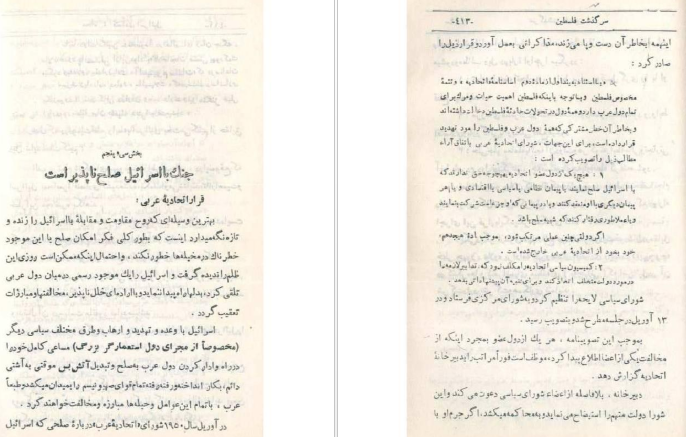 بخش سی و پنجم
جنگ با اسرائیل صلح ناپذیر است
قرار اتحادیهٔ عربی :
بهترین وسیله‌ای که روح مقاومت و مقابلهٔ با اسرائیل را زنده و
تازه نگه‌میدارد اینست که بطور کلی فکر امکان صلح با این موجود
خطرناک در مخیله‌ها خطور نکند، و احتمال اینکه ممکن است روزی این
ظلم را ندیده گرفت و اسرائیل را یک موجود رسمی در میان دول عربی
تلقی کرد، بدلها راه پیدا ننماید و با اراده‌ای خلل ناپذیر، مخالفتها و مبارزات
تعقیب گردد .
اسرائیل با وعده و تهدید و ارهاب و طرق مختلف سیاسی دیگر
(مخصوصاً از مجرای دول استعمارگر بزرگ) مساعی کامل خود را
در راه وادار کردن دول عرب به صلح و تبدیل آتش بس موقتی به آشتی
دائم، بکار انداخته و رفته رفته تمام قوای صهیونیسم را بمیدان میکشد و طبعاً
عرب ، با تمام این عوامل و حیله‌ها مبارزه و مخالفت خواهند کرد .
در آوریل سال ۱۹۵۰ شورای «اتحادیهٔ عرب» دربارهٔ صلحی که اسرائیل
سرگذشت فلسطین -۴۱۳-
اینهمه بخاطر آن دست و پا می‌زند، مذاکراتی بعمل آورد و قرار زیر را
صادر کرد :
« با استناد به بند اول از مادهٔ دوم اساسنامهٔ اتحادیه و تتمهٔ
مخصوص فلسطین و با توجه باینکه فلسطین اهمیت حیات و مرگ برای
تمام دول عرب دارد و همهٔ دول در تحولات حادثهٔ فلسطین دخالت داشته‌اند
و بخاطر آن خطر مشترکی که همهٔ دول عرب و فلسطین را مورد تهدید
قرار داده است، برای این جهات ، شورای اتحادیهٔ عربی باتفاق آراء
مطالب ذیل را تصویب کرده است :
۱ . هیچ یک از دول عضو اتحادیه بهیچوجه حق ندارند که
با اسرائیل صلح نمایند یا پیمان نظامی یا سیاسی یا اقتصادی و یا هر
پیمان دیگری با او منعقد کنند و یا در پیمانی که او جزء آنست شرکت نمایند
و یا عملا طوری رفتار کنند که شبه صلح باشد .
اگر دولتی چنین عملی مرتکب شود، بموجب مادهٔ هیجدهم،
خود بخود از اتحادیهٔ عربی خارج شده است .
۲ : کمیسیون سیاسی اتحادیه را مکلف نمود که، تدابیر لازمه را
در مورد دولت متخلف اتخاذ کند و برای تنبیه آن پیشنهاداتی بدهد .
شورای سیاسی لایحه را تنظیم کرده به شورای مرکزی فرستاد و در
۱۳ آوریل در جلسه مطرح شد و بتصویب رسید .
بموجب این تصویبنامه ، هر یک از دول عضو بمجرد اینکه از
مخالفت یکی از اعضا اطلاع پیدا کرد، موظف است فوراً مراتب را بدبیرخانهٔ
اتحادیه گزارش دهد .
دبیرخانه ، بلافاصله از اعضاء شورای سیاسی دعوت می‌کند و این
شورا دولت متهم را استیضاح می‌نماید و به محاکمه میکشد، اگر جرم او با